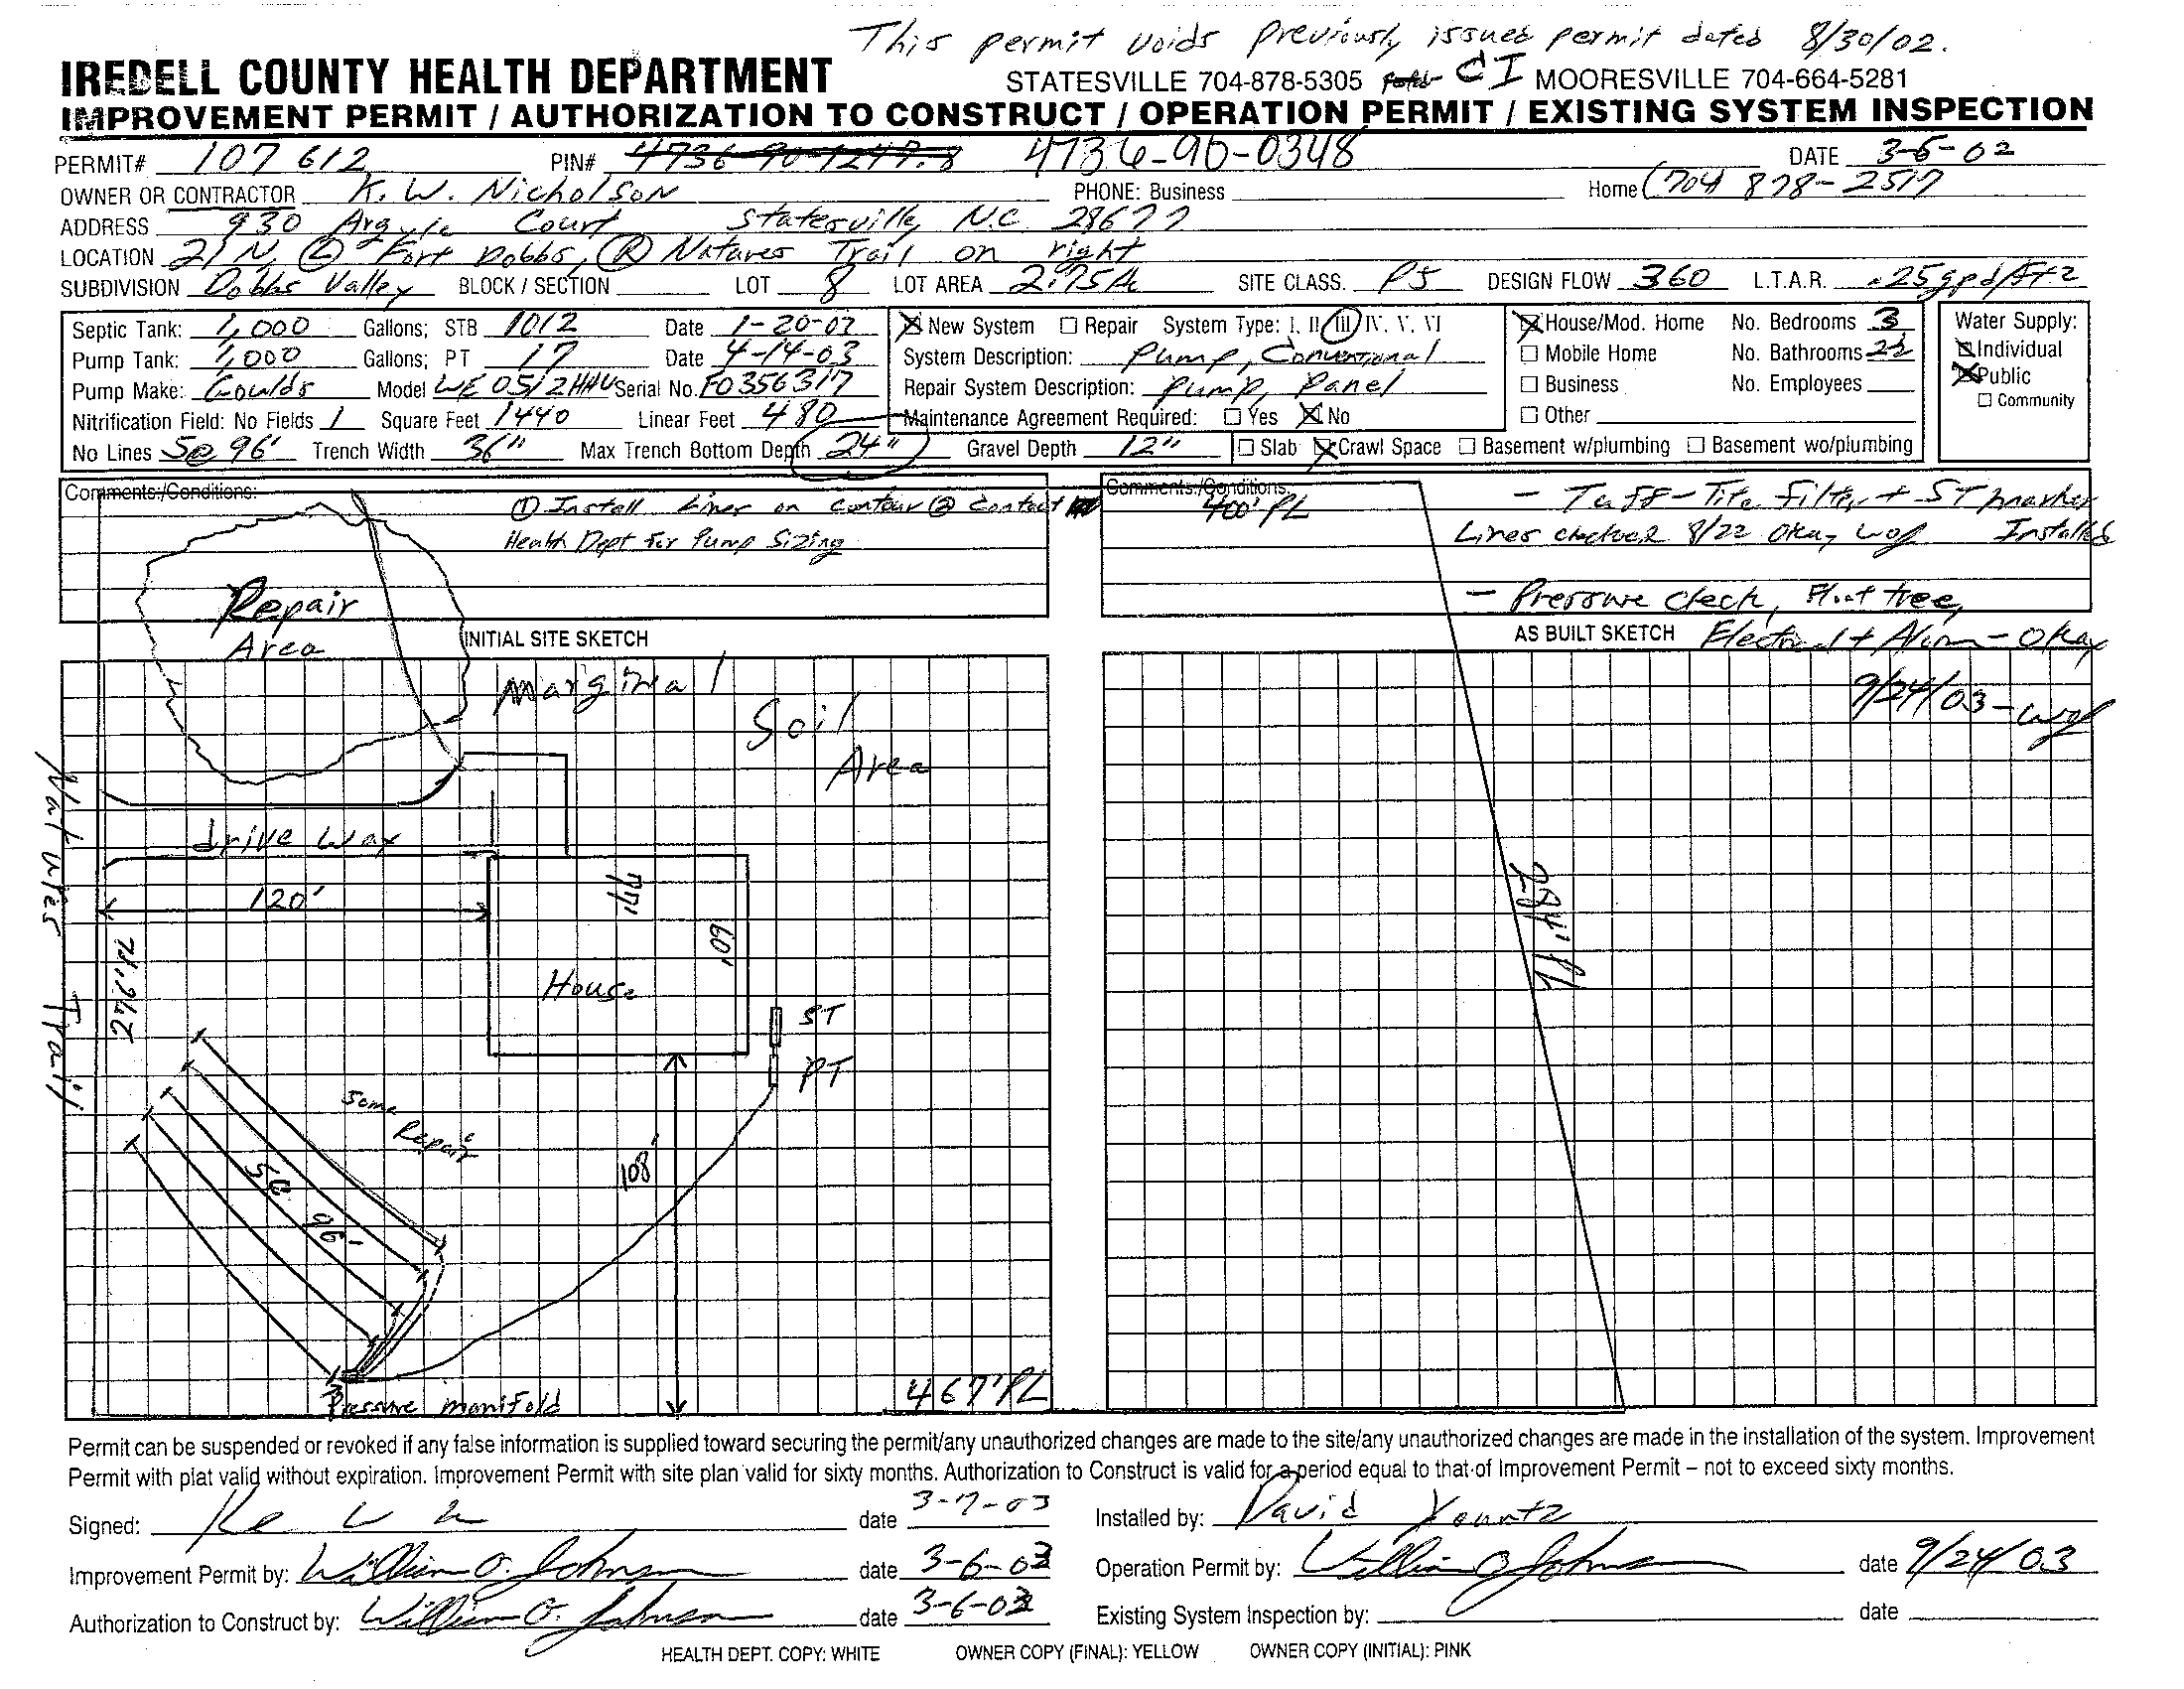 This permit voids previously issued permit dated 8/30/02.
IREDELL COUNTY HEALTH DEPARTMENT STATESVILLE 704-878-5305 CI MOORESVILLE 704-664-5281
IMPROVEMENT PERMIT / AUTHORIZATION TO CONSTRUCT / OPERATION PERMIT / EXISTING SYSTEM INSPECTION
PERMIT# 107612 PIN# 4736-90-1247.8 4736-90-0348 DATE 3-6-02
OWNER OR CONTRACTOR K. W. Nicholson PHONE: Business Home (704) 878-2517
ADDRESS 930 Argyle Court Statesville, N.C. 28677
LOCATION 21 N, (L) Fort Dobbs, (R) Natures Trail on right
SUBDIVISION Dobbs Valley BLOCK / SECTION LOT 8 LOT AREA 2.75 Ac SITE CLASS. PS DESIGN FLOW 360 L.T.A.R. .25gpd/ft2
Septic Tank: 1,000 Gallons; STB 1012 Date 1-20-07 New System Repair System Type: I, II (III) IV, V, VI House/Mod. Home No. Bedrooms 3 Water Supply:
Pump Tank: 1,000 Gallons; PT 17 Date 4-14-03 System Description: Pump, Conventional Mobile Home No. Bathrooms 2½ Individual
Pump Make: Goulds Model WE 0512HHU Serial No. F0356317 Repair System Description: Pump, Panel Business No. Employees Public
Nitrification Field: No Fields 1 Square Feet 1440 Linear Feet 480 Maintenance Agreement Required: Yes No Other Community
No Lines 5@ 96' Trench Width 36" Max Trench Bottom Depth 24" Gravel Depth 12" Slab Crawl Space Basement w/plumbing Basement wo/plumbing
Comments:/Conditions: ① Install Lines on contour ② Contact
Health Dept For Pump Sizing
Comments:/Conditions: 400' PL - Tuff-Tite filter + ST marker
Lines checked 8/22 Okay WOJ Installed
- Pressure check, Float tree,
Repair
Area
INITIAL SITE SKETCH
AS BUILT SKETCH Electrical + Alarm - Okay
9/24/03 - WOJ
Marginal
Soil
Area
drive way
120'
77'
60'
House
Natures Trail
276.12
ST
PT
Some
Repair
5@
96'
108'
284' PL
467' PL
Pressure manifold
Permit can be suspended or revoked if any false information is supplied toward securing the permit/any unauthorized changes are made to the site/any unauthorized changes are made in the installation of the system. Improvement
Permit with plat valid without expiration. Improvement Permit with site plan valid for sixty months. Authorization to Construct is valid for a period equal to that of Improvement Permit – not to exceed sixty months.
Signed: date 3-7-03 Installed by: David Kountz
Improvement Permit by: William O. Johnson date 3-6-03 Operation Permit by: William O Johnson date 9/24/03
Authorization to Construct by: William O. Johnson date 3-6-03 Existing System Inspection by: date
HEALTH DEPT. COPY: WHITE OWNER COPY (FINAL): YELLOW OWNER COPY (INITIAL): PINK